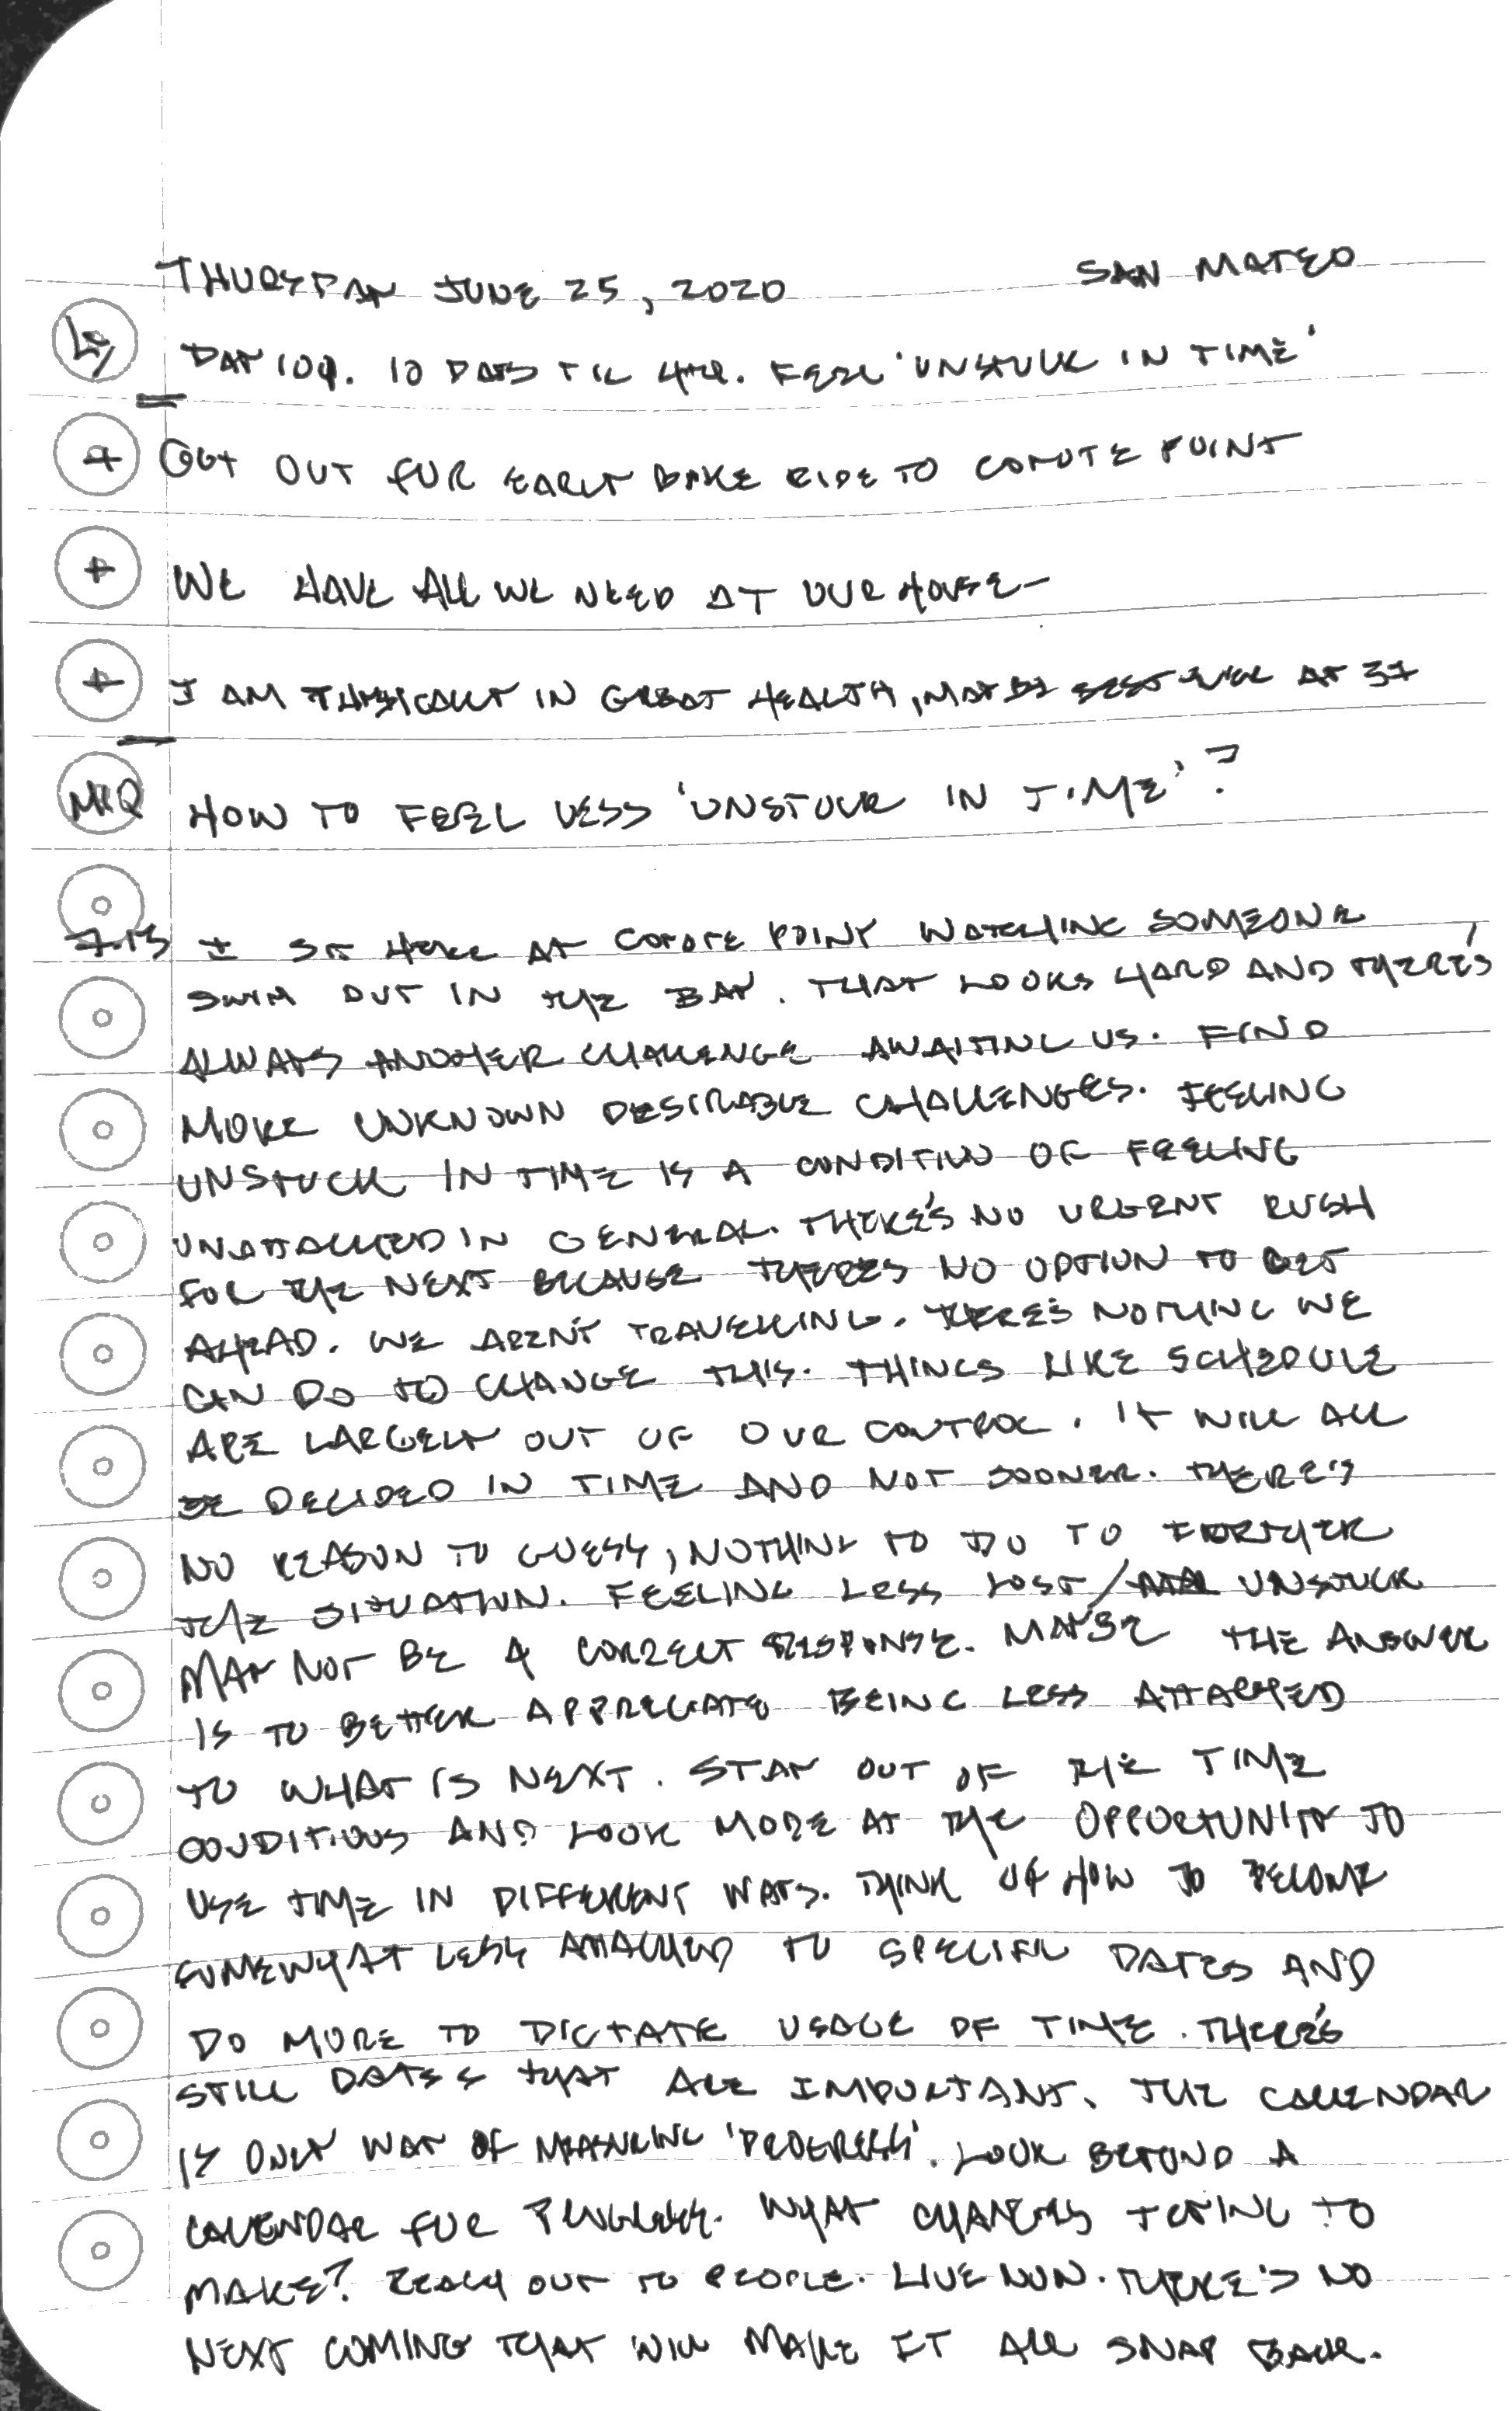 THURSDAY JUNE 25, 2020 SAN MATEO
DAY 109. 10 DAYS TIL 4TH. FEEL 'UNSTUCK IN TIME'
+ GOT OUT FOR EARLY BIKE RIDE TO COYOTE POINT
+ WE HAVE ALL WE NEED AT OUR HOUSE-
+ I AM PHYSICALLY IN GREAT HEALTH, MAYBE BEST EVER AT 37
MIQ HOW TO FEEL LESS 'UNSTUCK IN TIME'?
7.13 I SIT HERE AT COYOTE POINT WATCHING SOMEONE
SWIM OUT IN THE BAY. THAT LOOKS HARD AND THERE'S
ALWAYS ANOTHER CHALLENGE AWAITING US. FIND
MORE UNKNOWN DESIRABLE CHALLENGES. FEELING
UNSTUCK IN TIME IS A CONDITION OF FEELING
UNATTACHED IN GENERAL. THERE'S NO URGENT RUSH
FOR THE NEXT BECAUSE THERE'S NO OPTION TO GET
AHEAD. WE AREN'T TRAVELLING. THERE'S NOTHING WE
CAN DO TO CHANGE THIS. THINGS LIKE SCHEDULE
ARE LARGELY OUT OF OUR CONTROL. IT WILL ALL
BE DECIDED IN TIME AND NOT SOONER. THERE'S
NO REASON TO GUESS, NOTHING TO DO TO FURTHER
THE SITUATION. FEELING LESS LOST/ UNSTUCK
MAY NOT BE A CORRECT RESPONSE. MAYBE THE ANSWER
IS TO BETTER APPRECIATE BEING LESS ATTACHED
TO WHAT IS NEXT. STAY OUT OF THE TIME
CONDITIONS AND LOOK MORE AT THE OPPORTUNITY TO
USE TIME IN DIFFERENT WAYS. THINK OF HOW TO BECOME
SOMEWHAT LESS ATTACHED TO SPECIFIC DATES AND
DO MORE TO DICTATE USAGE OF TIME. THERE'S
STILL DATES THAT ARE IMPORTANT. THE CALENDAR
IS ONLY WAY OF MARKING 'PROGRESS'. LOOK BEYOND A
CALENDAR FOR PROGRESS. WHAT CHANGES TRYING TO
MAKE? REACH OUT TO PEOPLE. LIVE NOW. THERE'S NO
NEXT COMING THAT WILL MAKE IT ALL SNAP BACK.